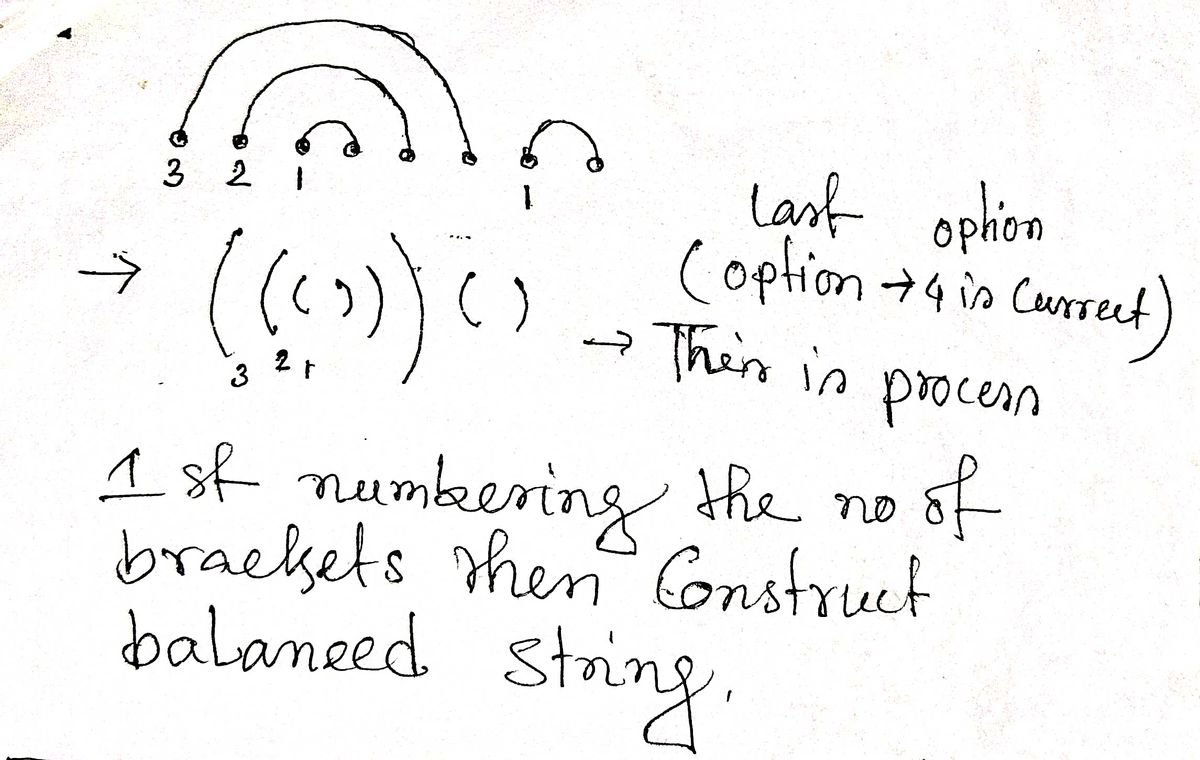 3 2 1 1
→ ( ( ( ) ) ) ( )
3 2 1
Last option
(option → 4 is Currect)
→ This is process
1 st numbering the no of
brackets then Construct
balanced string.